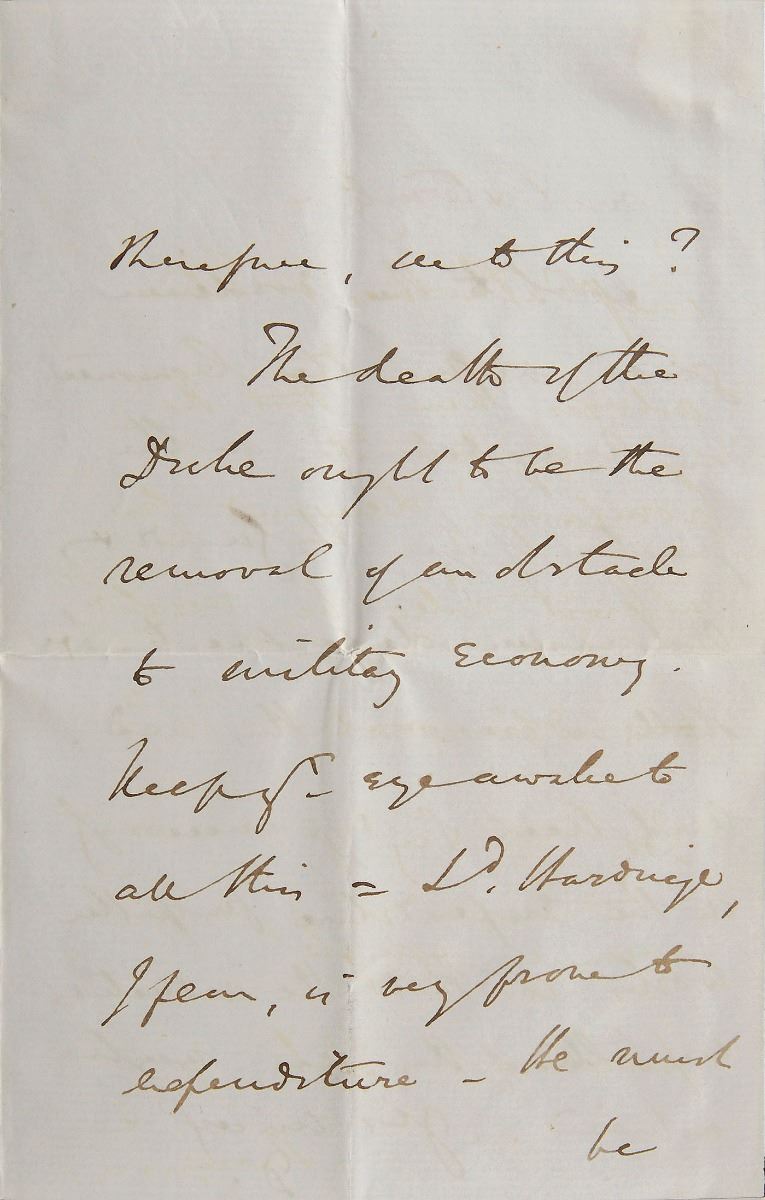 therefore, see to this?
The death of the
Duke ought to be the
removal of an obstacle
to military economy.
Keep yr. eye awake to
all this = Ld. Hardinge,
I fear, is very prone to
expenditure - He must
be